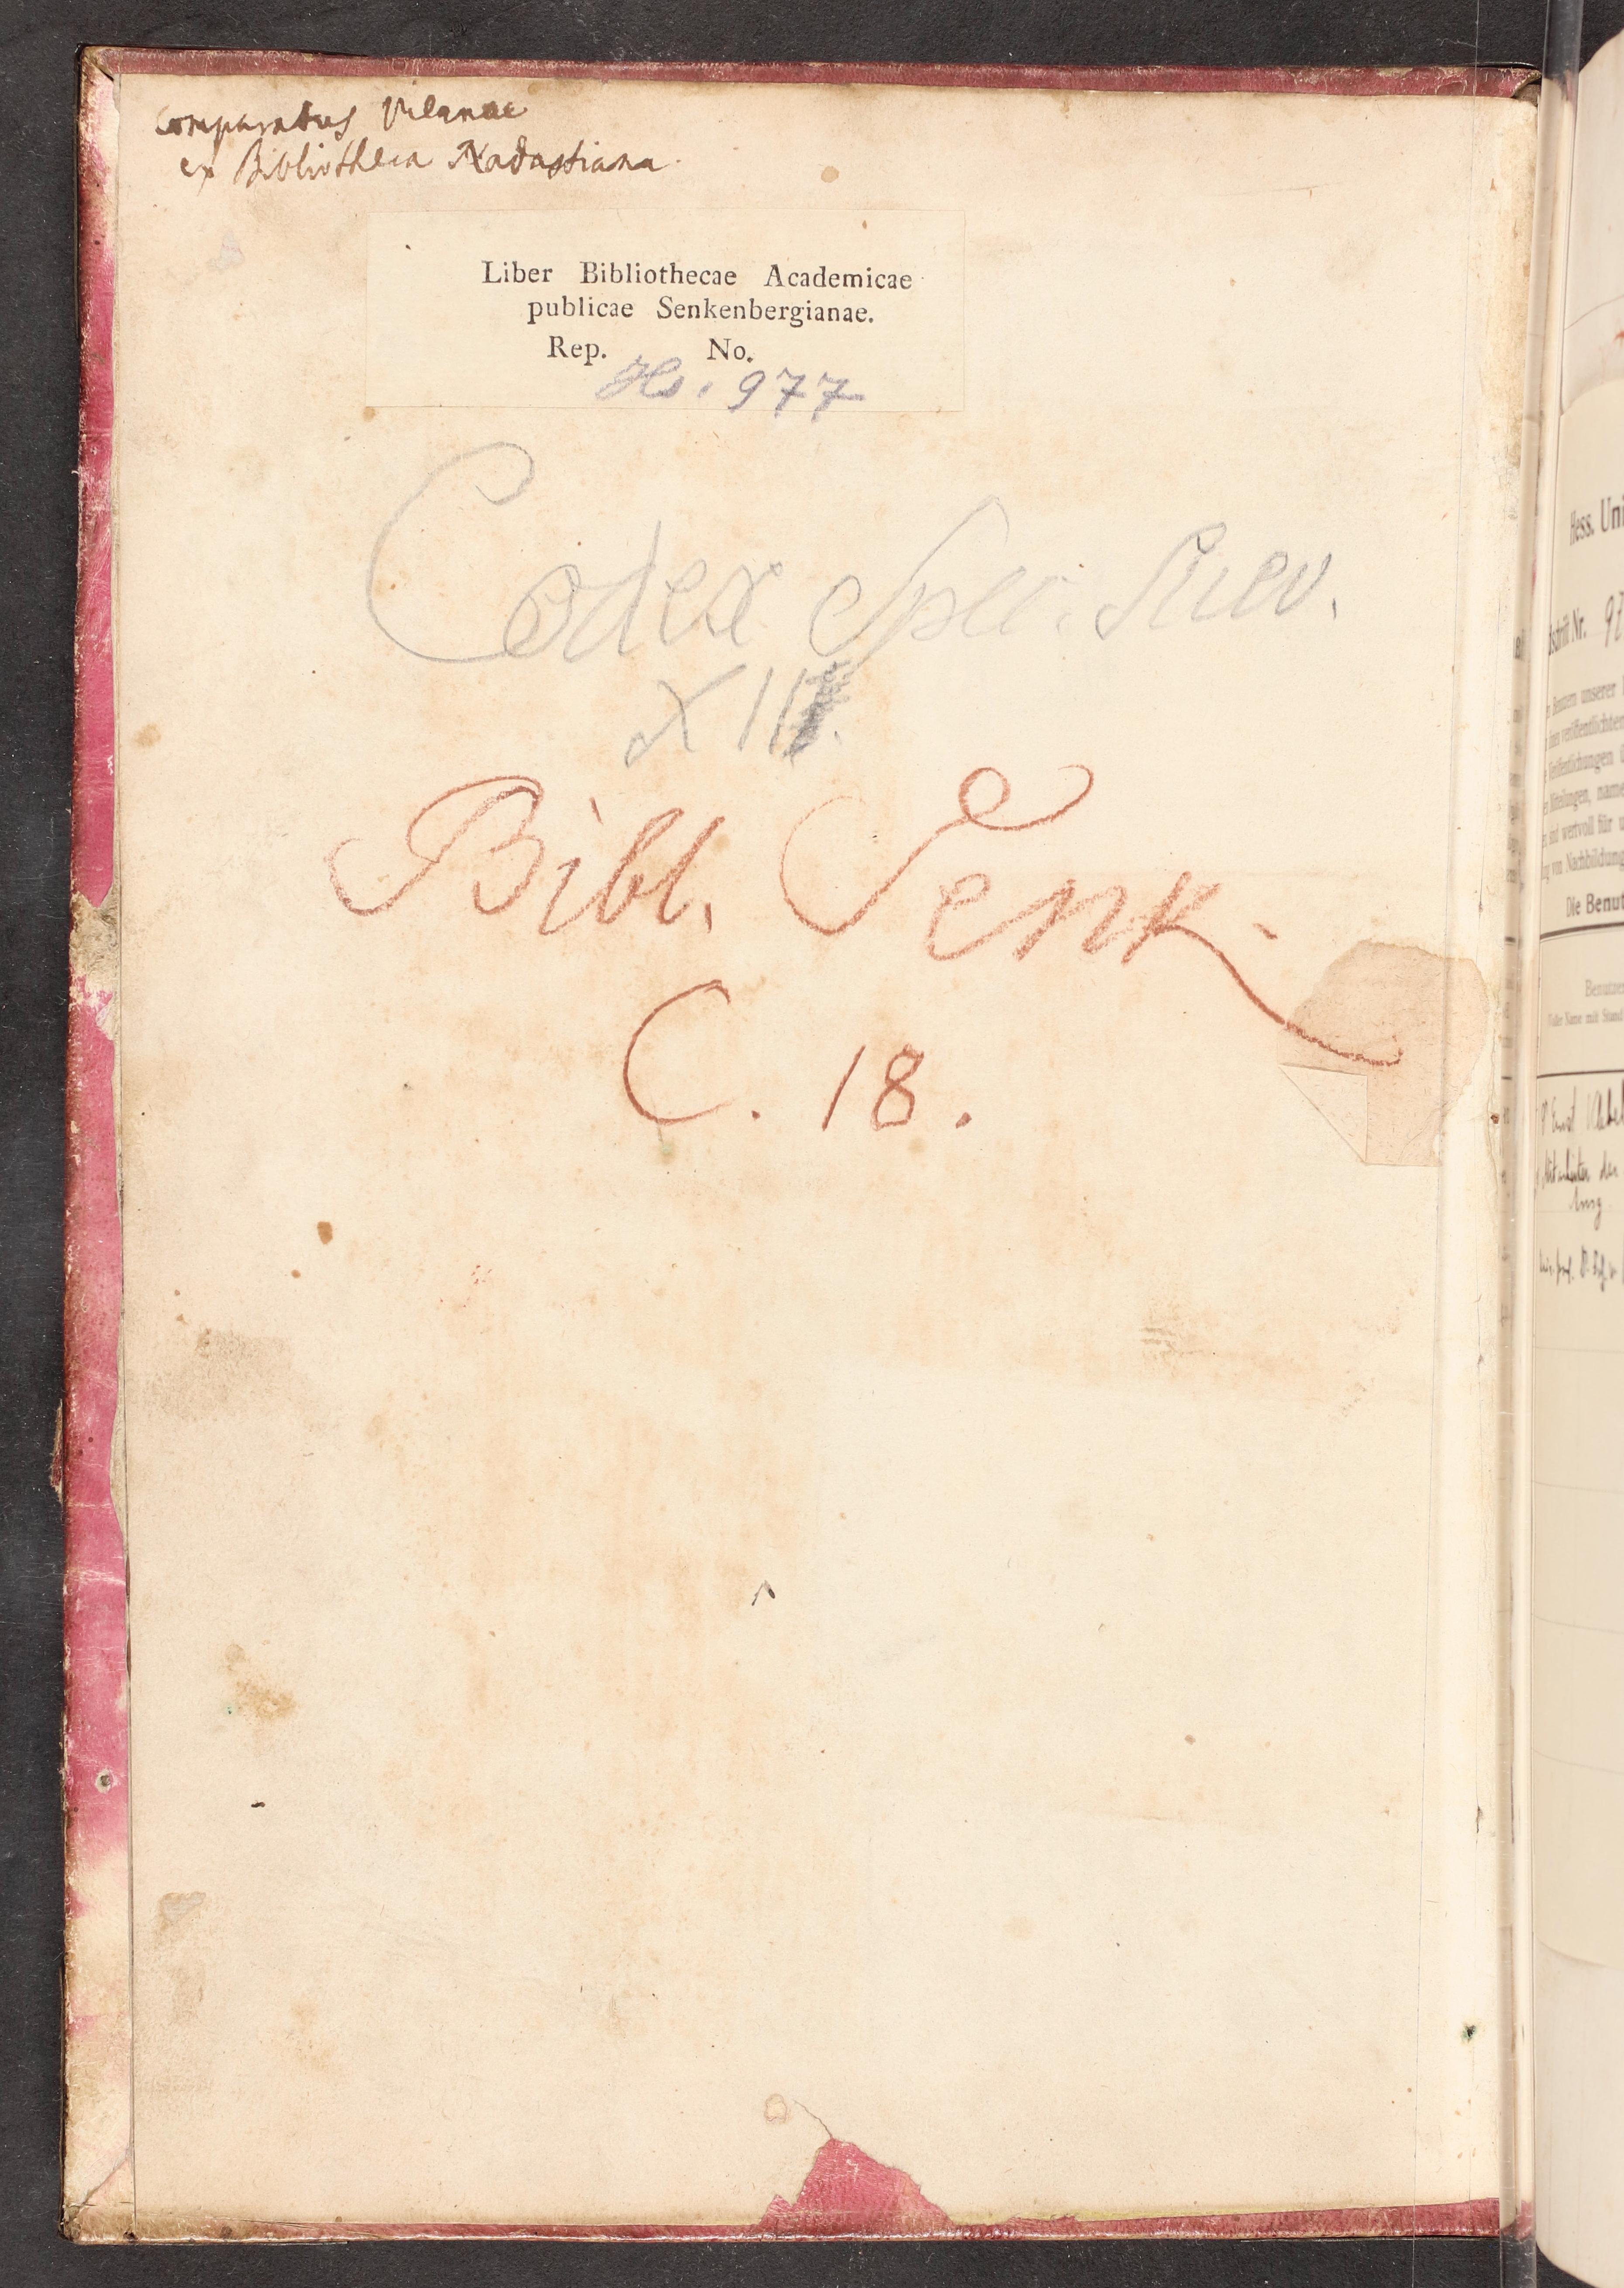 comparatus Vienae
ex Bibliotheca Nadastiana.
Liber Bibliothecae Academicae
publicae Senkenbergianae.
Rep. No.
Hs. 977
Codex Spec. Suev.
XII.
Bibl. Senk.
C. 18.
Hess. Uni
schrift Nr. 97
Benutzern unserer
veröffentlichten
Veröffentlichungen
Mitteilungen, name
sind wertvoll für u
von Nachbildung
Die Benut
Benutze
Name mit Stand
Ernst
Mitarbeiter der